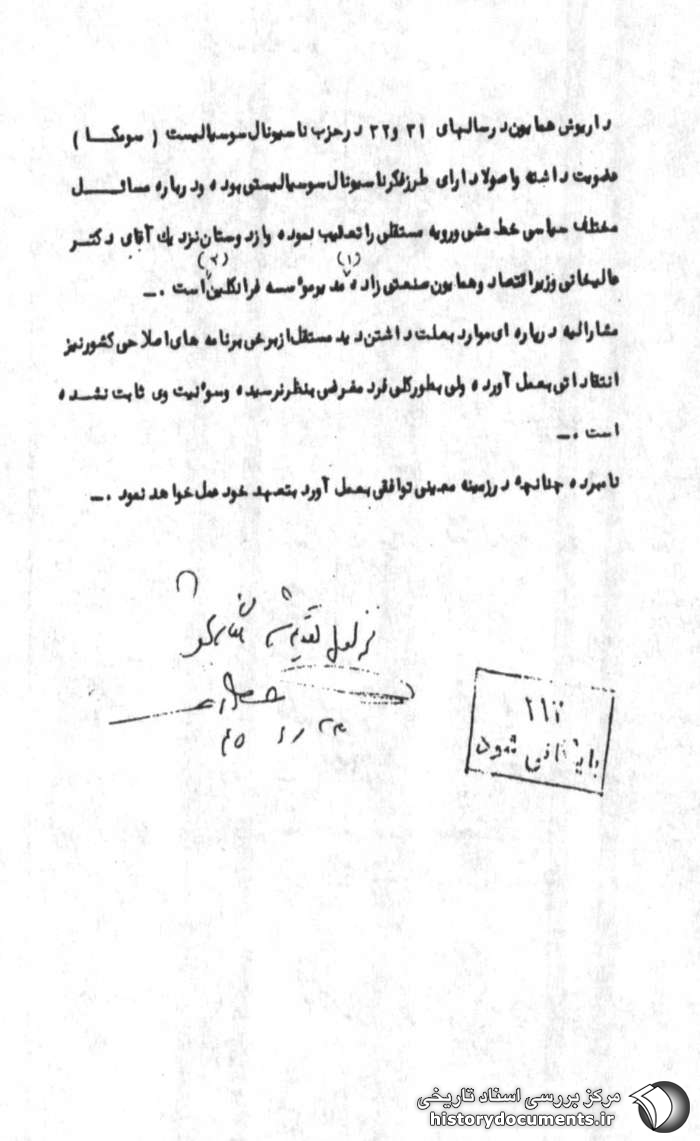 داریوش همایون در سالهای ۳۱ و ۳۲ در حزب ناسیونال سوسیالیست ( سومکا )
عضویت داشته و اصولا دارای طرز فکر ناسیونال سوسیالیستی بوده و در باره مسائل
مختلف سیاسی خط مشی و رویه مستقلی را تعقیب نموده و از دوستان نزدیك آقای دکتر
(۱) (۲)
عالیخانی وزیر اقتصاد و همایون صنعتی زاده مدیر موسسه فرانکلین است .ـ
مشارالیه در باره ای موارد بعلت داشتن دید مستقل از برخی برنامه های اصلاحی کشور نیز
انتقاداتی بعمل آورده ولی بطور کلی فرد مغرضی بنظر نرسیده و سوء نیت وی ثابت نشده
است .ـ
نامبرده چنانچه در زمینه معینی توافقی بعمل آورد بتعهد خود عمل خواهد نمود .ـ
۴۵
۲۱۲
بایگانی شود
مرکز بررسی اسناد تاریخی
historydocuments.ir